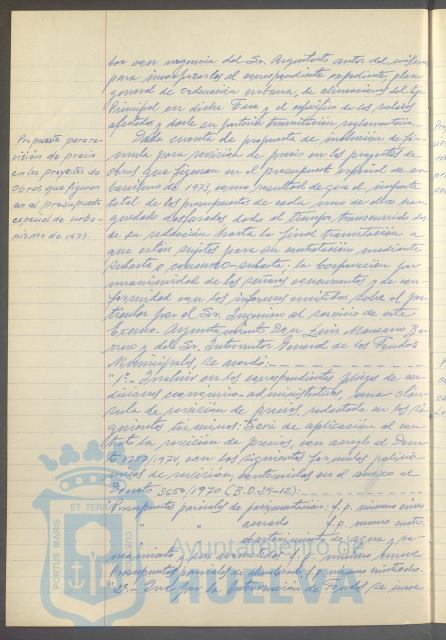 bor con urgencia del Sr. Arquitecto autor del informe
para incorporarlos al correspondiente expediente, plano
general de ordenación urbana, de alineaciones del Eje
Principal en dicha Fase y el específico de los solares
afectados y darle su posterior tramitación reglamentaria.
Propuesta para re-
visión de precio
en los proyectos de
Obras que figuran
en el presupuesto
especial de urba-
nismo de 1973.
Dada cuenta de propuesta de inclusión de fór-
mula para revisión de precio en los proyectos de
obras que figuran en el presupuesto especial de ur-
banismo de 1973, como resultado de que el importe
total de los presupuestos de cada uno de ellos han
quedado desfasados dado el tiempo transcurrido des-
de su redacción hasta la final tramitación a
que están sujetos para su contratación mediante
subasta o concurso-subasta; la Corporación por
unanimidad de los señores concurrentes y de con-
formidad con los informes emitidos sobre el par-
ticular por el Sr. Ingeniero al servicio de este
Excmo. Ayuntamiento Don Luis
y del Sr. Interventor General de los Fondos
Municipales, se acordó:
"1º.- Incluir en los correspondientes pliegos de con-
diciones económico-administrativas, una cláu-
sula de revisión de precios, redactada en los si-
guientes términos: Será de aplicación al con-
trato la revisión de precios, con arreglo al Decre-
to 1757/1974, con las siguientes fórmulas polinó-
micas de revisión, contenidas en el anexo al
Decreto 3650/1970 (B.O. 29-12):
"Presupuestos parciales de pavimentación: f.p. número cinco
" " acerado f.p. número cuatro.
" " abastecimiento de agua y sa-
neamiento y sus acometidas f.p. número nueve
Presupuestos parciales de alumbrado f.p. número
"2º.- Que por la Intervención de Fondos se
PORTUS MARIS
ET TERRAE
CUSTODIA
Ayuntamiento de
HUELVA